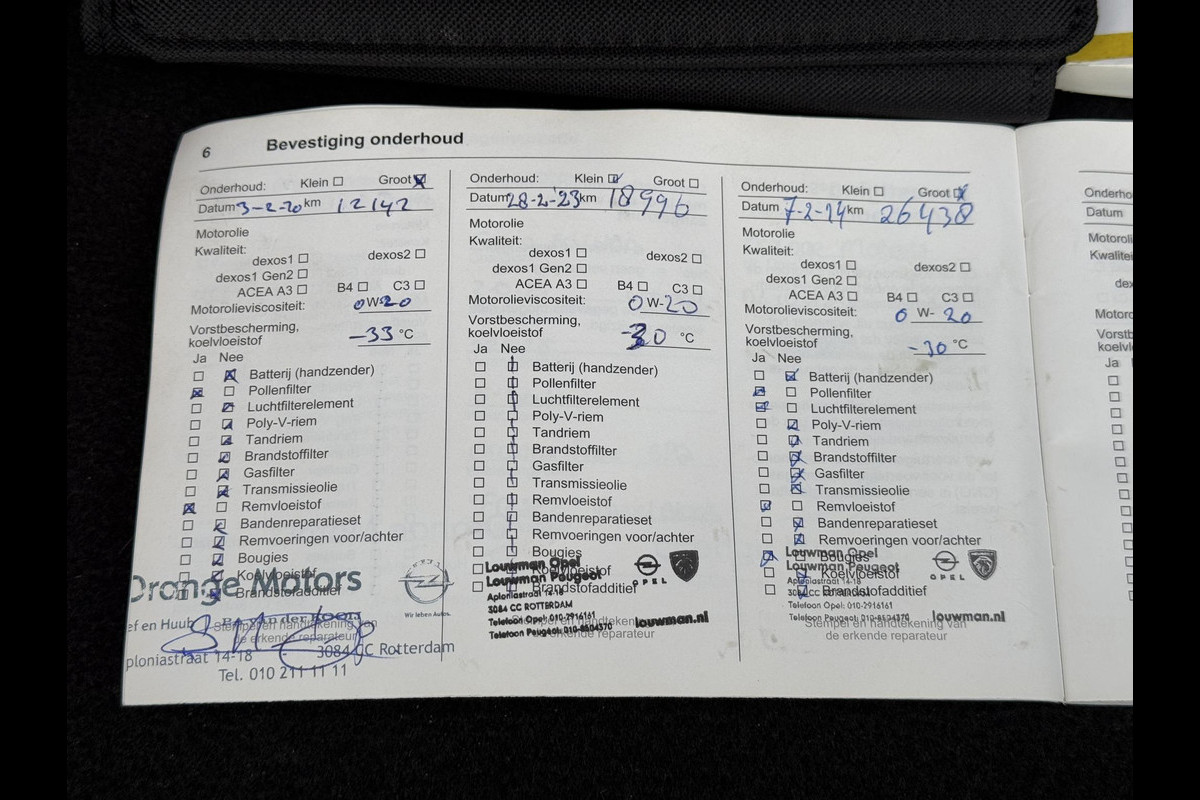 6 Bevestiging onderhoud
Onderhoud: Klein Groot
Datum 3-2-20 km 12142
Motorolie
Kwaliteit:
dexos1 dexos2
dexos1 Gen2
ACEA A3 B4 C3
Motorolieviscositeit: 0 W-20
Vorstbescherming,
koelvloeistof -33 °C
Ja Nee
Batterij (handzender)
Pollenfilter
Luchtfilterelement
Poly-V-riem
Tandriem
Brandstoffilter
Gasfilter
Transmissieolie
Remvloeistof
Bandenreparatieset
Remvoeringen voor/achter
Bougies
Koelvloeistof
Brandstofadditief
Orange Motors
OPEL
Wir leben Autos.
ef en Huub
Stempel en handtekening van
de erkende reparateur
ploniastraat 14-18 - 3084 CC Rotterdam
Tel. 010 211 11 11
Onderhoud: Klein Groot
Datum 28-2-'23 km 18996
Motorolie
Kwaliteit:
dexos1 dexos2
dexos1 Gen2
ACEA A3 B4 C3
Motorolieviscositeit: 0 W-20
Vorstbescherming,
koelvloeistof -30 °C
Ja Nee
Batterij (handzender)
Pollenfilter
Luchtfilterelement
Poly-V-riem
Tandriem
Brandstoffilter
Gasfilter
Transmissieolie
Remvloeistof
Bandenreparatieset
Remvoeringen voor/achter
Bougies
Koelvloeistof
Brandstofadditief
Louwman Opel
Louwman Peugeot
Aploniastraat 14-18
3084 CC ROTTERDAM
Telefoon Opel: 010-2916161
Telefoon Peugeot: 010-8504370
OPEL
louwman.nl
Stempel en handtekening van
de erkende reparateur
Onderhoud: Klein Groot
Datum 7-2-24 km 26438
Motorolie
Kwaliteit:
dexos1 dexos2
dexos1 Gen2
ACEA A3 B4 C3
Motorolieviscositeit: 0 W- 20
Vorstbescherming,
koelvloeistof -30 °C
Ja Nee
Batterij (handzender)
Pollenfilter
Luchtfilterelement
Poly-V-riem
Tandriem
Brandstoffilter
Gasfilter
Transmissieolie
Remvloeistof
Bandenreparatieset
Remvoeringen voor/achter
Bougies
Koelvloeistof
Brandstofadditief
Louwman Opel
Louwman Peugeot
Aploniastraat 14-18
Telefoon Opel: 010-2916161
OPEL
louwman.nl
Stempel en handtekening van
de erkende reparateur
Onderho
Datum
Motoroli
Kwalitei
dex
Motoro
Vorstb
koelvl
Ja